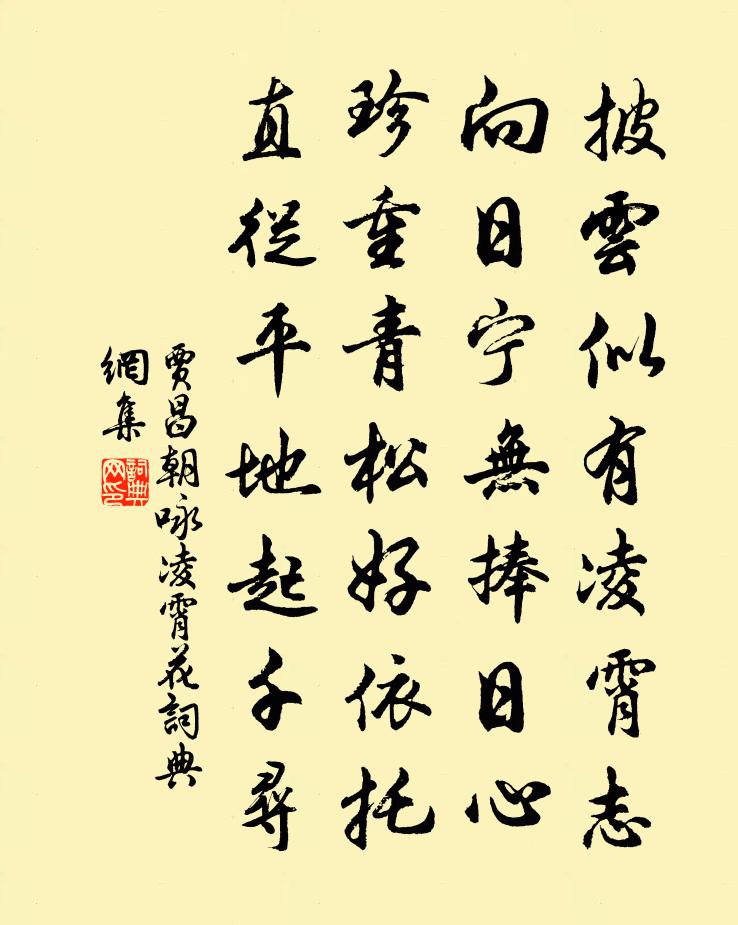 披雲似有凌霄志
向日宁無捧日心
珍重青松好依托
直從平地起千尋
賈昌朝咏凌霄花詞典
網集
詞典
网印